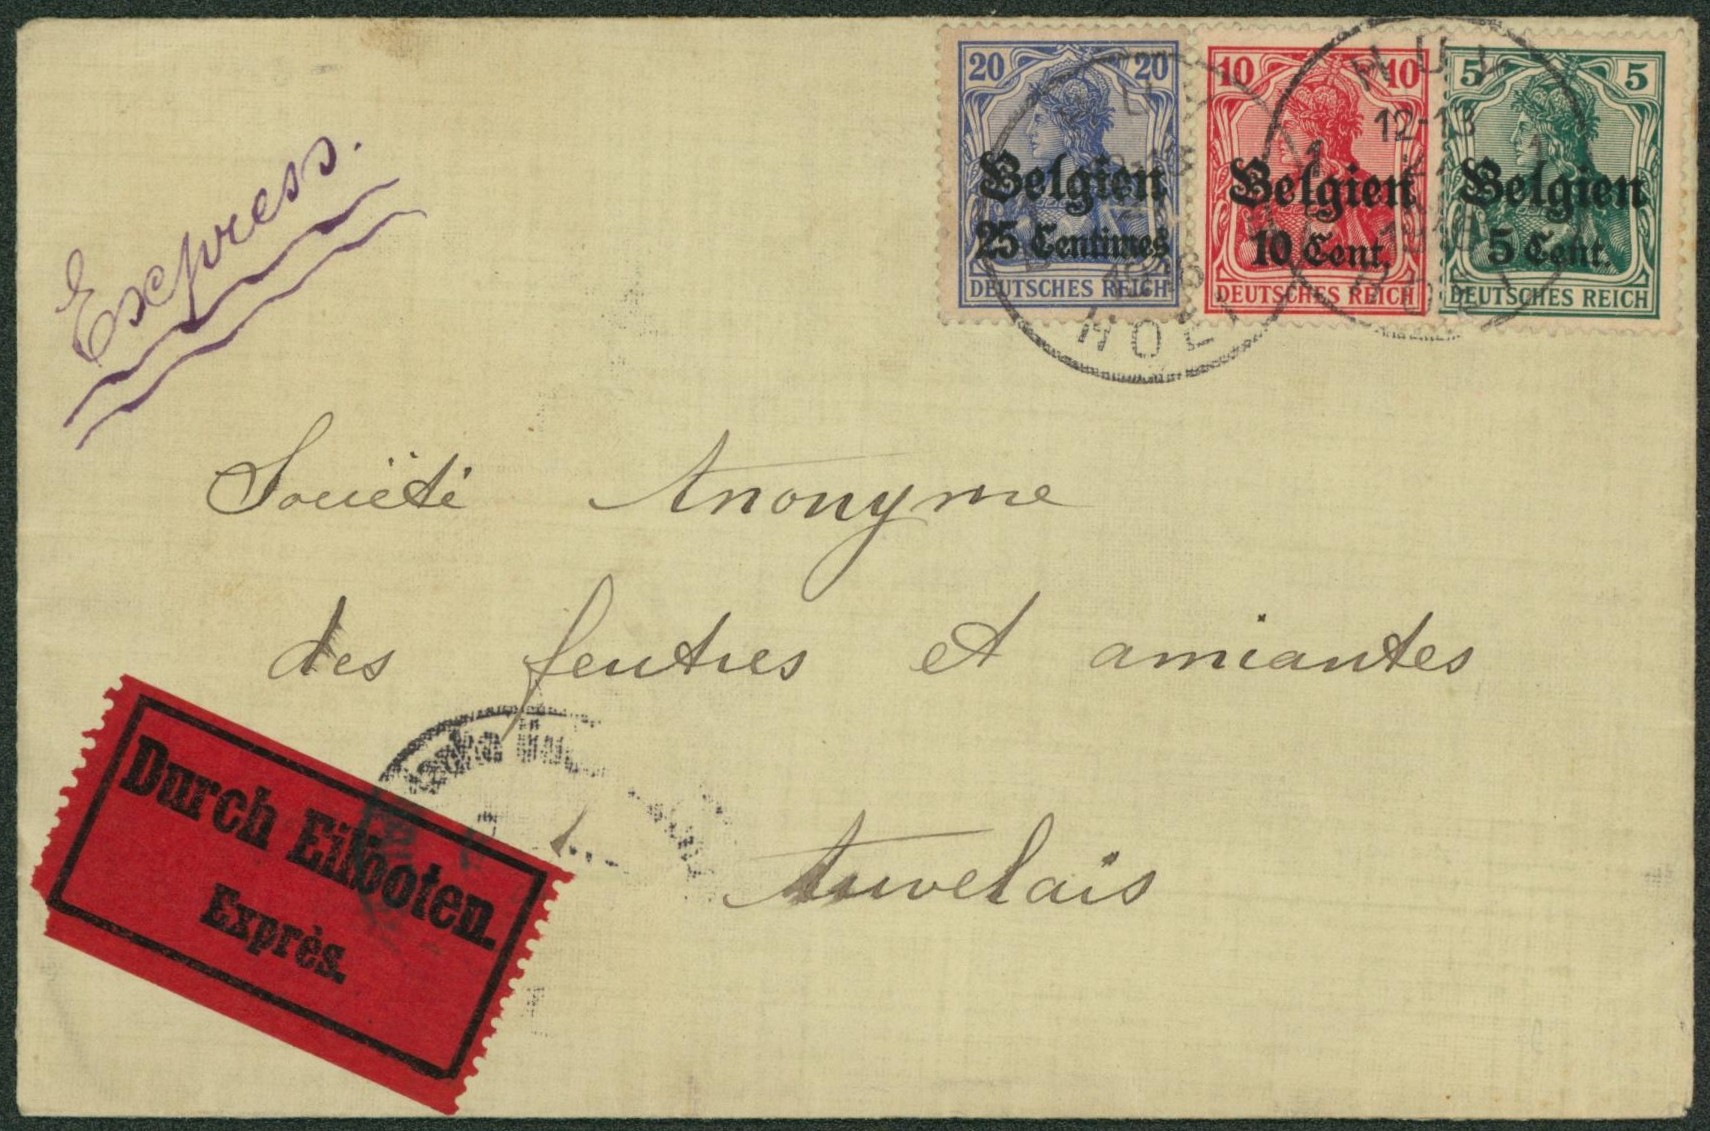 Express.
20 20
Belgien
25 Centimes
DEUTSCHES REICH
10 10
Belgien
10 Cent.
DEUTSCHES REICH
5 5
Belgien
5 Cent.
DEUTSCHES REICH
HUY
12-13
1916
HOEI
HOEI
Société Anonyme
des feutres et amiantes
Auvelais
Durch Eilboten.
Exprès.